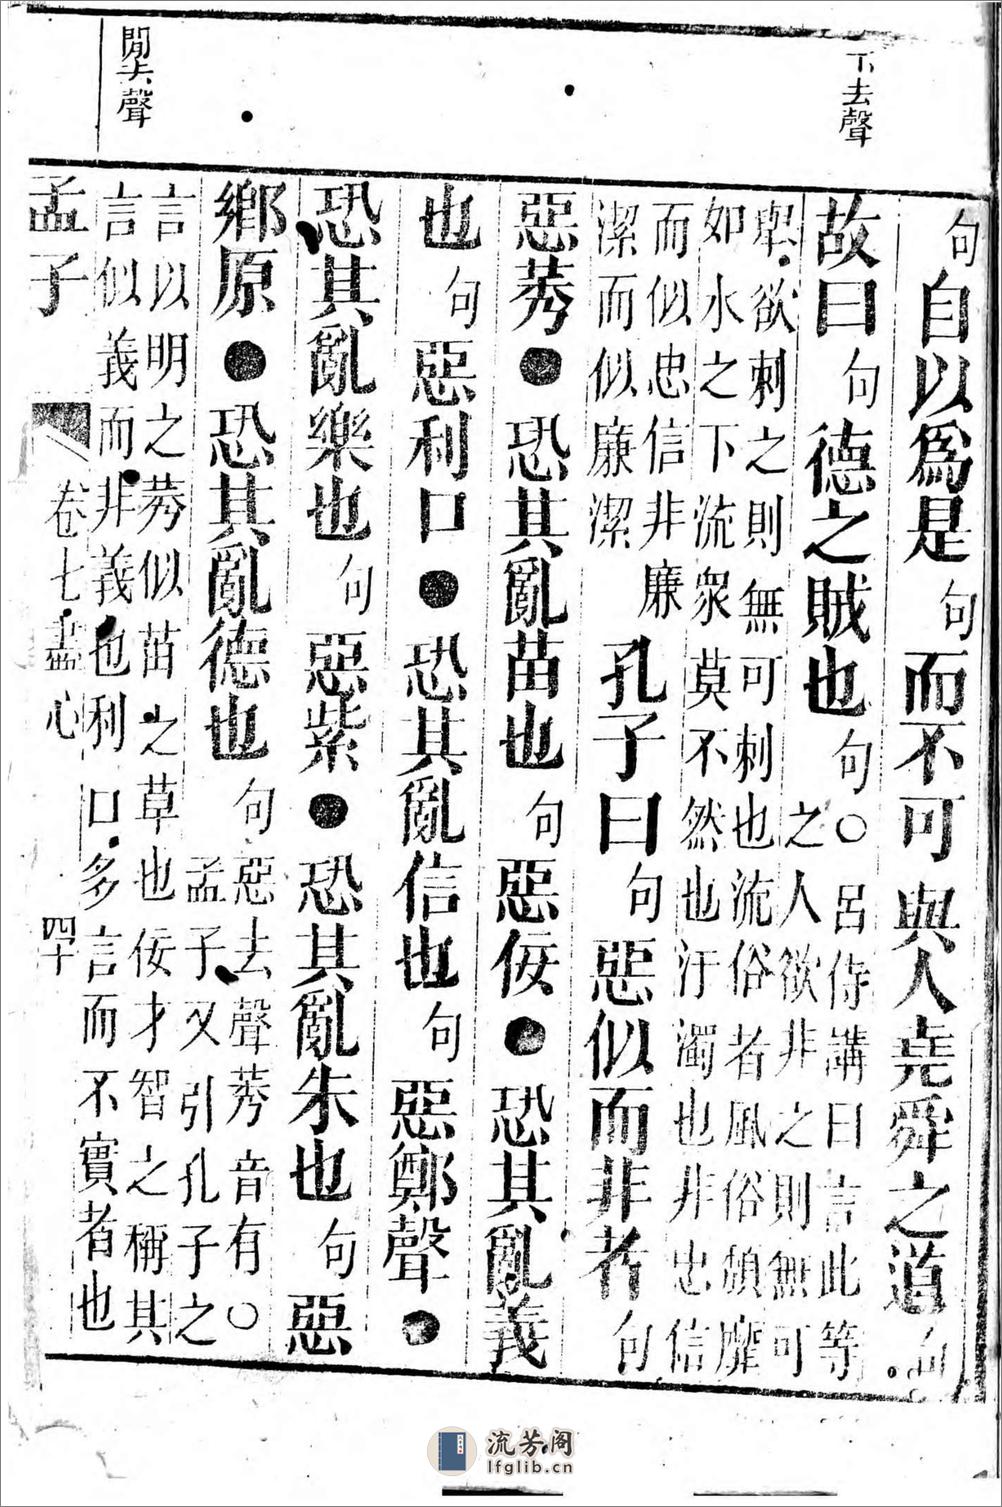 下去聲
閒去聲
句自以爲是句而不可與人堯舜之道句
故曰句德之賊也句○呂侍講曰言此等
之人欲非之則無可
舉欲刺之則無可刺也流俗者風俗頹靡
如水之下流衆莫不然也汙濁也非忠信
而似忠信非廉
潔而似廉潔
孔子曰句惡似而非者句
惡莠●恐其亂苗也句惡佞●恐其亂義
也句惡利口●恐其亂信也句惡鄭聲●
恐其亂樂也句惡紫●恐其亂朱也句惡
鄉原●恐其亂德也句惡去聲莠音有○
孟子又引孔子之
言以明之莠似苗之草也佞才智之稱其
言似義而非義也利口多言而不實者也
孟子 卷七盡心 四十
流芳阁
lfglib.cn